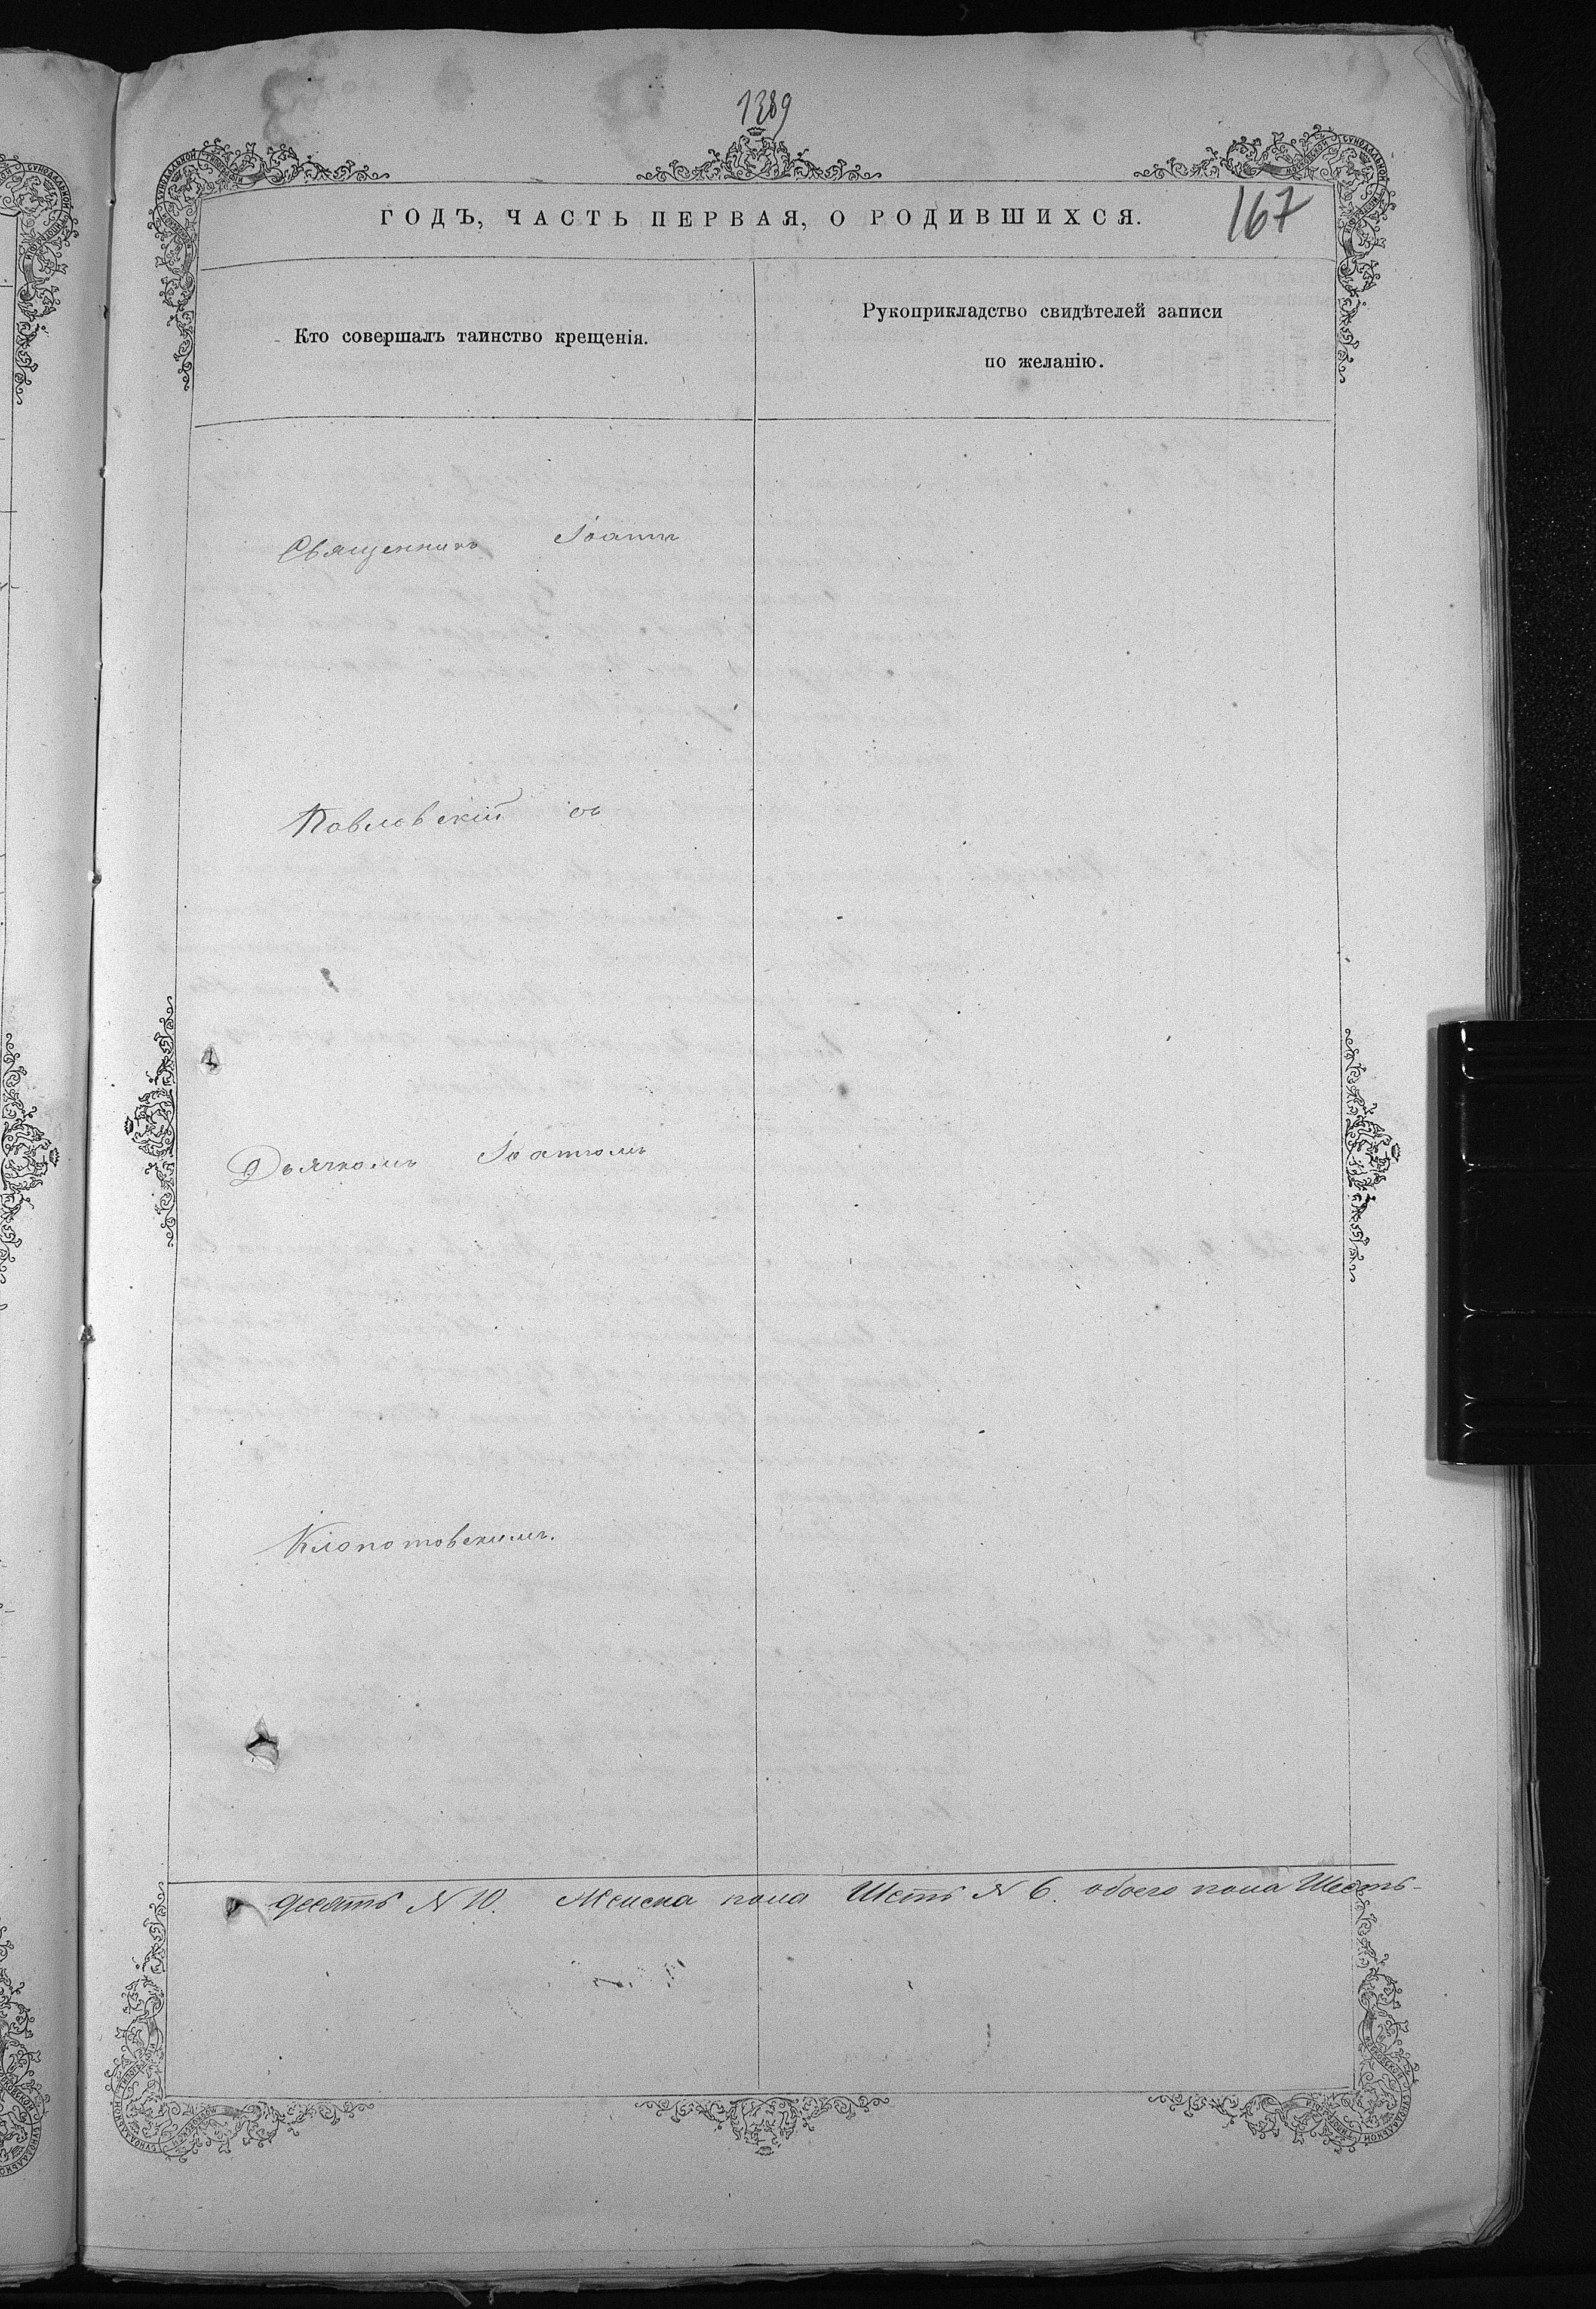 1389
ГОДЪ, ЧАСТЬ ПЕРВАЯ, О РОДИВШИХСЯ.
167
Кто совершалъ таинство крещенія.
Рукоприкладство свидѣтелей записи
по желанію.
Священникъ Іоаннъ
Павловскій съ
Дьячкомъ Іоанномъ
Клопотовскимъ.
десять N 10. Женска пола Шесть N 6. обоего пола Шесть-